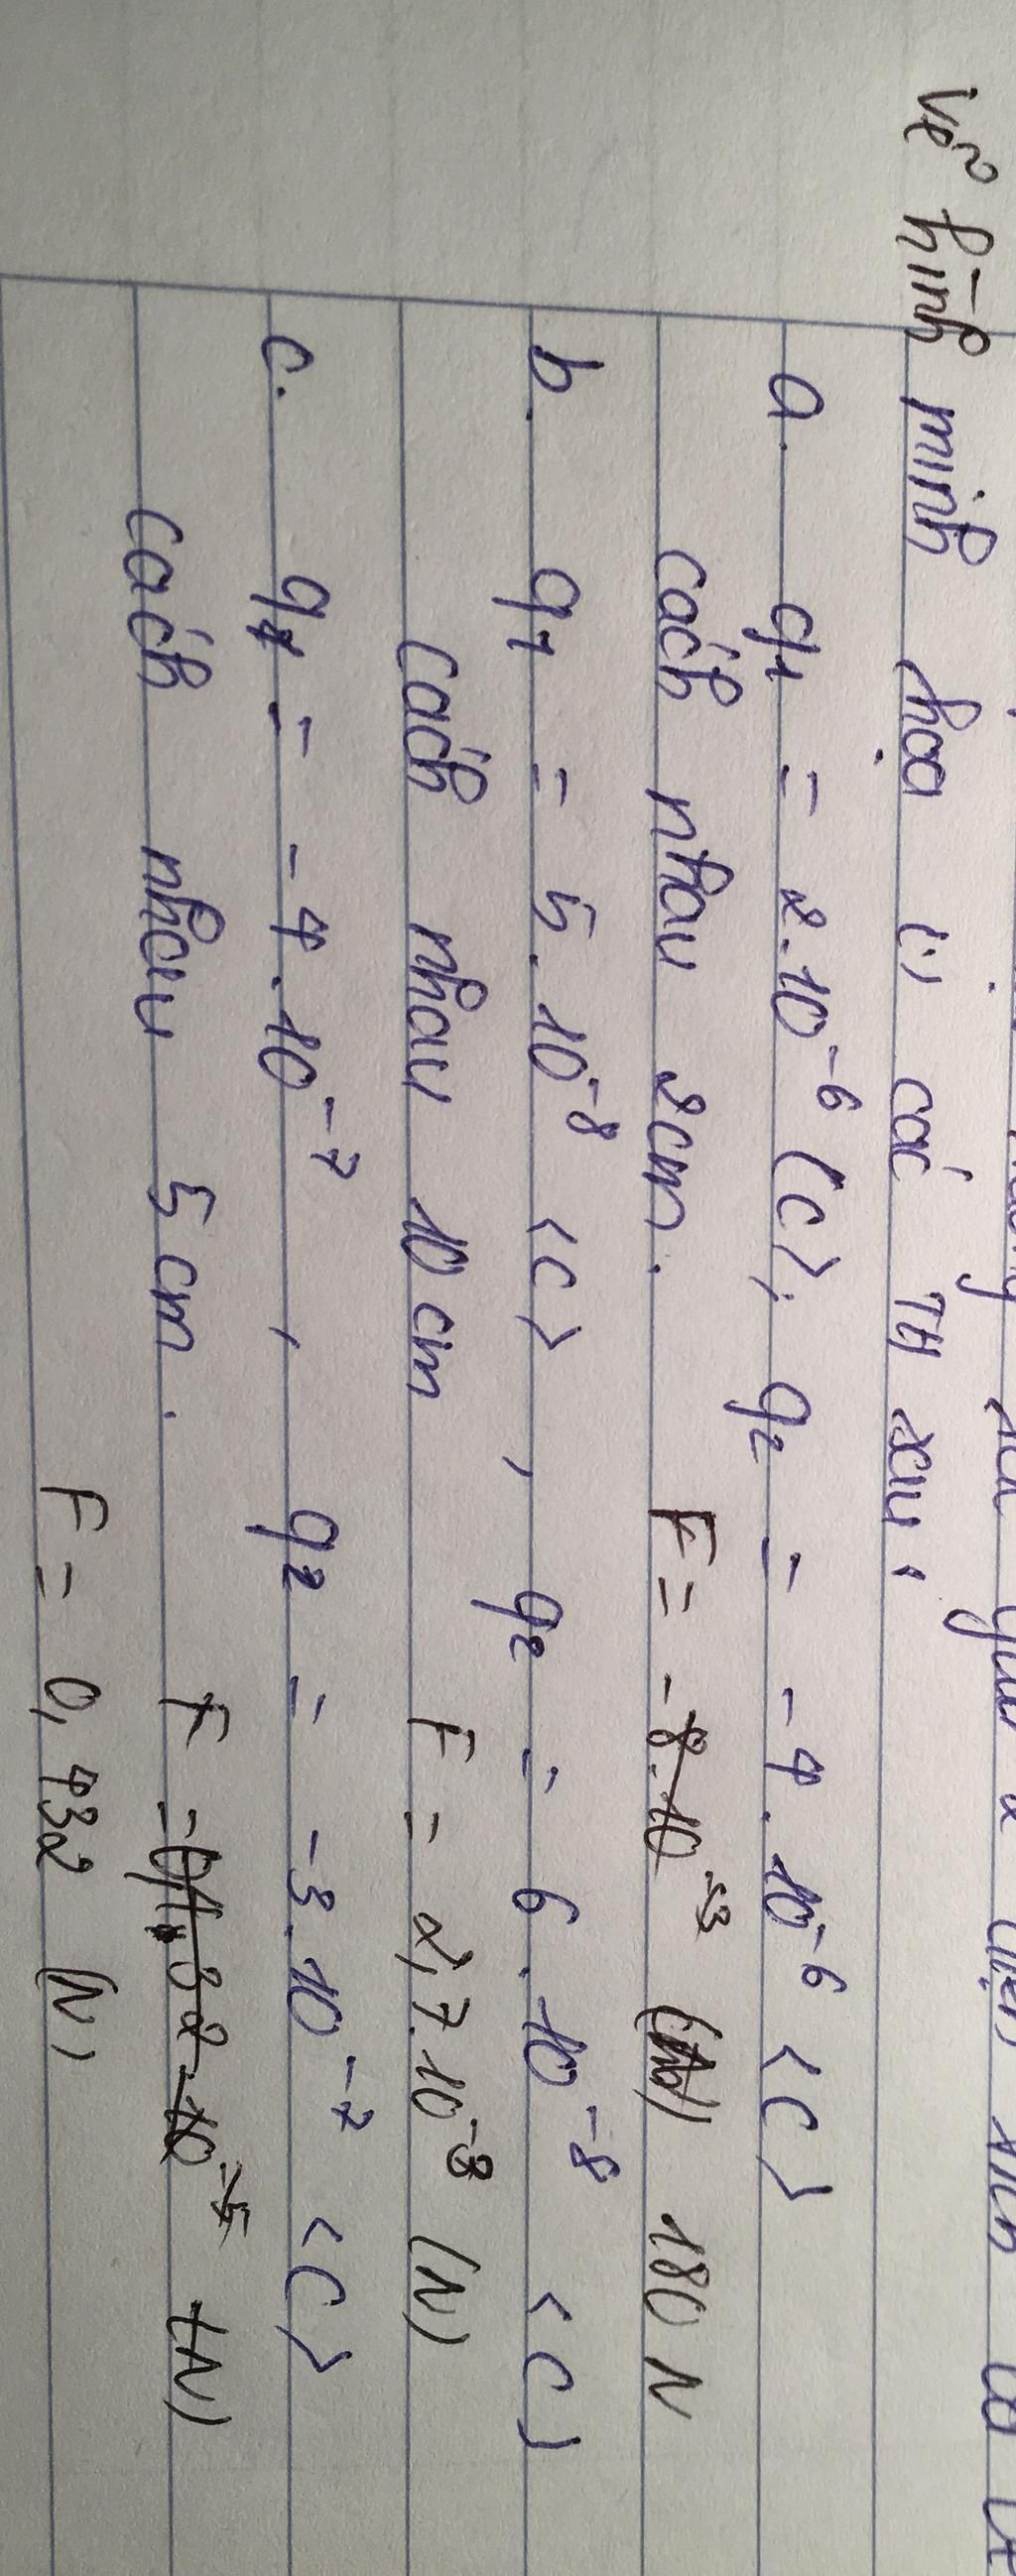 Vẽ hình minh họa (:) các TH sau:
a. q1 = 2.10^-6 (C); q2 = -4.10^-6 <C>
cách nhau 2cm. F = -8.10^-13 (N) 180 N
b. q1 = 5.10^-8 <C>, q2 = 6.10^-8 <C)
cách nhau 10 cm F = 2,7.10^-3 (N)
c. q1 = -4.10^-7, q2 = -3.10^-7 <C>
cách nhau 5 cm. F = (N)
F = 0,432 (N)